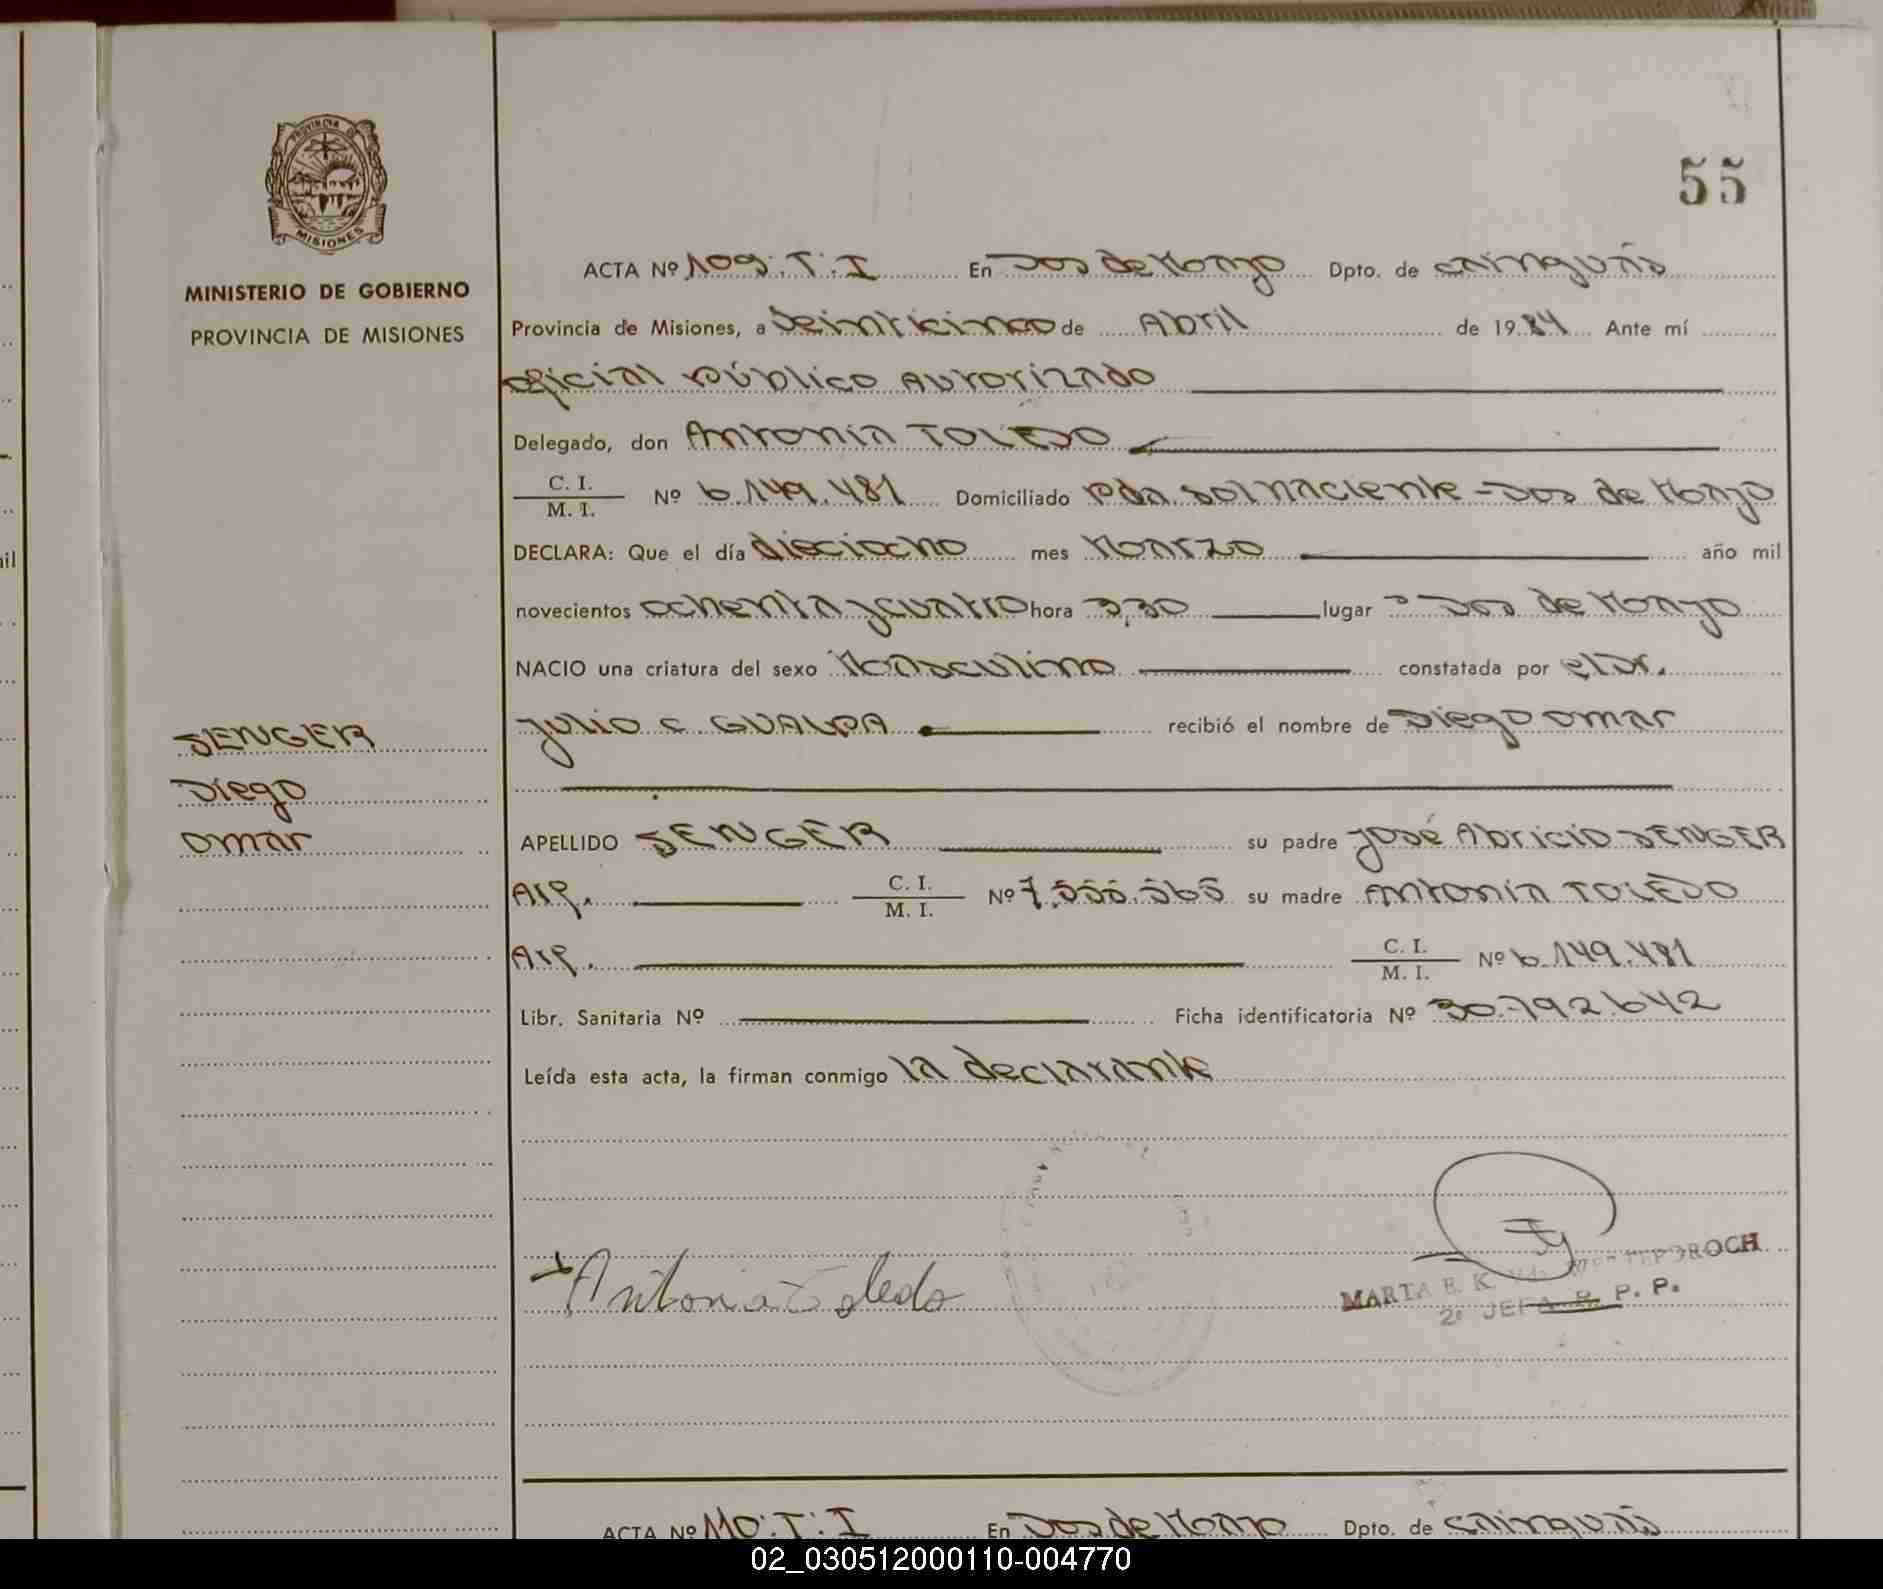 PROVINCIA DE
MISIONES
MINISTERIO DE GOBIERNO
PROVINCIA DE MISIONES
55
ACTA Nº 109. T: I En Dos de Mayo Dpto. de Cainguás
Provincia de Misiones, a veinticinco de Abril de 1984 Ante mí
oficial público Autorizado
Delegado, don Antonia TOLEDO
C. I. / M. I. Nº 6.149.481 Domiciliado Pda. Sol naciente - Dos de Mayo
DECLARA: Que el día dieciocho mes Marzo año mil
novecientos ochenta y cuatro hora 3,30 lugar Dos de Mayo
NACIO una criatura del sexo Masculino constatada por el Dr.
Julio C GUALPA recibió el nombre de Diego Omar
SENGER
Diego
Omar
APELLIDO SENGER su padre José Abricio SENGER
Arg. C. I. / M. I. Nº su madre Antonia TOLEDO
Arg. C. I. / M. I. Nº 6.149.481
Libr. Sanitaria Nº Ficha identificatoria Nº 30.792.642
Leída esta acta, la firman conmigo la declarante
Antonia Toledo
MARTA E. K.
2º JEFA R. P. P.
ACTA Nº 110: T: I En Dos de Mayo Dpto. de Cainguás
02_030512000110-004770